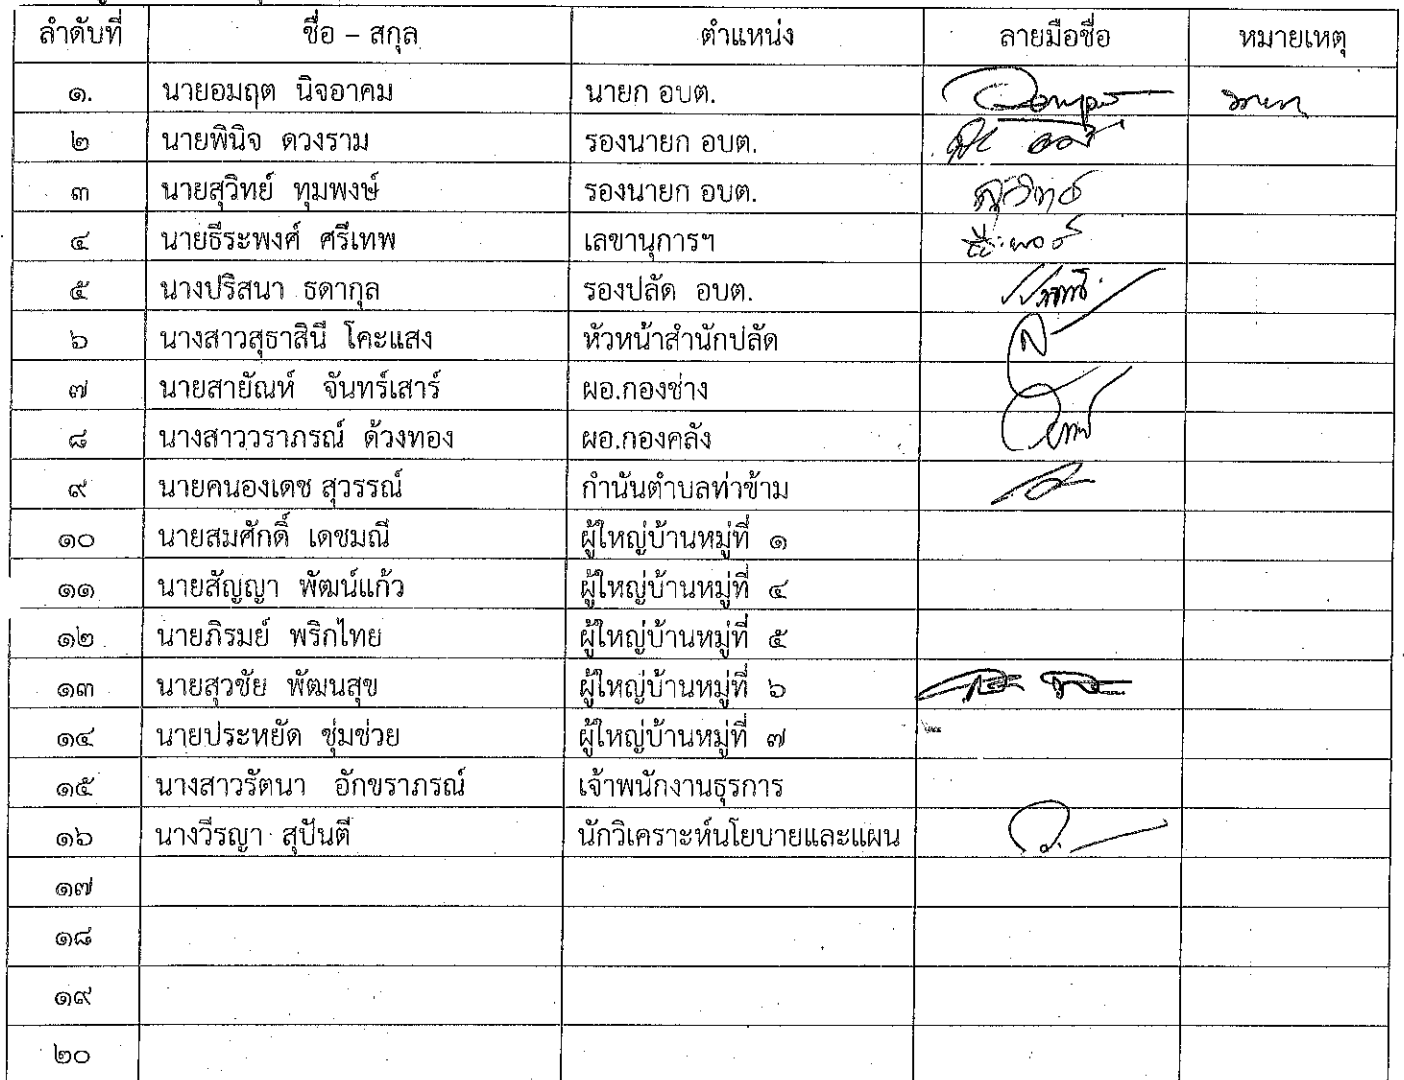 ลำดับที่ ชื่อ – สกุล ตำแหน่ง ลายมือชื่อ หมายเหตุ
๑. นายอมฤต นิจอาคม นายก อบต.
๒ นายพินิจ ดวงราม รองนายก อบต.
๓ นายสุวิทย์ ทุมพงษ์ รองนายก อบต. สุวิทย์
๔ นายธีระพงศ์ ศรีเทพ เลขานุการฯ
๕ นางปริสนา ธดากุล รองปลัด อบต.
๖ นางสาวสุธาสินี โคะแสง หัวหน้าสำนักปลัด
๗ นายสายัณห์ จันทร์เสาร์ ผอ.กองช่าง
๘ นางสาววราภรณ์ ด้วงทอง ผอ.กองคลัง
๙ นายคนองเดช สุวรรณ์ กำนันตำบลท่าข้าม
๑๐ นายสมศักดิ์ เดชมณี ผู้ใหญ่บ้านหมู่ที่ ๑
๑๑ นายสัญญา พัฒน์แก้ว ผู้ใหญ่บ้านหมู่ที่ ๔
๑๒ นายภิรมย์ พริกไทย ผู้ใหญ่บ้านหมู่ที่ ๕
๑๓ นายสุวชัย พัฒนสุข ผู้ใหญ่บ้านหมู่ที่ ๖
๑๔ นายประหยัด ชุ่มช่วย ผู้ใหญ่บ้านหมู่ที่ ๗
๑๕ นางสาวรัตนา อักขราภรณ์ เจ้าพนักงานธุรการ
๑๖ นางวีรญา สุปันตี นักวิเคราะห์นโยบายและแผน
๑๗
๑๘
๑๙
๒๐